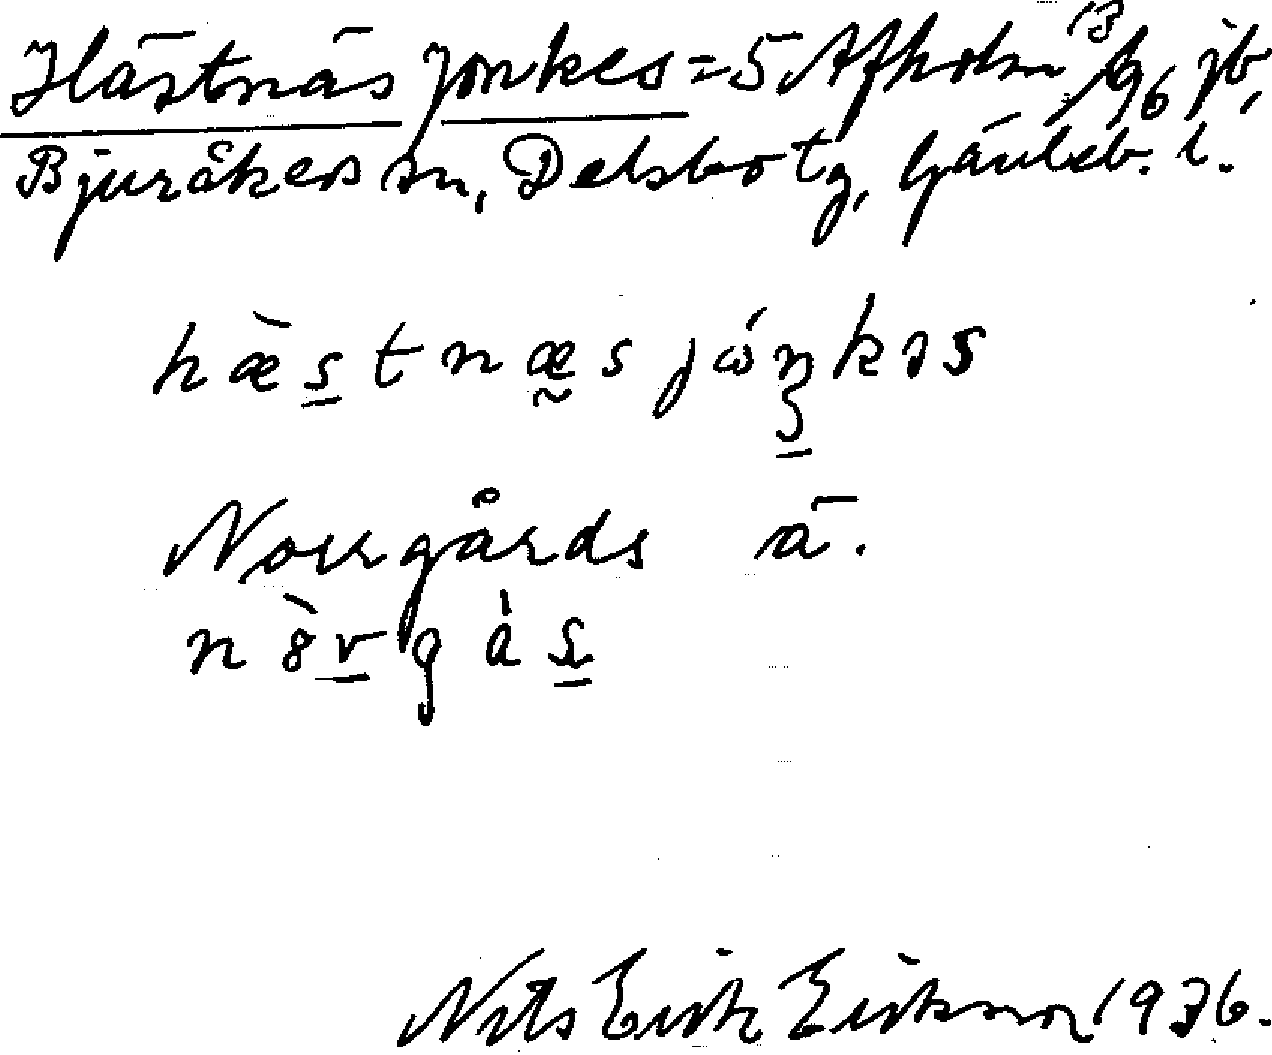 Hästnäs Jonkes = 5 Afholm 13/96 jb,
Bjuråkers sn, Delsbo tg, Gävleb. l.
hæ̀s̲tnæ̰s jώŋ̲kəs
Norrgårds ä.
n8̀v̲gàs̲
Nils Erik Eriksson 1936.